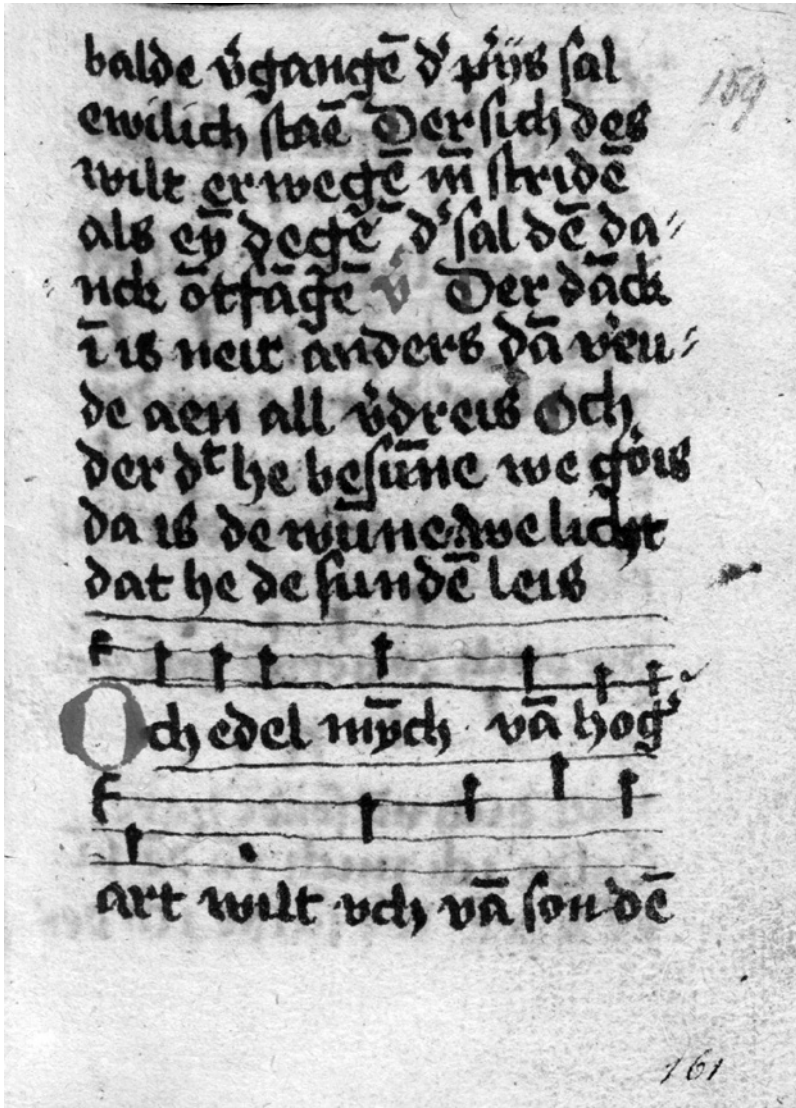 balde v'gangē d' p'ijs sal
159
ewilich staē Der sich des
wilt erwegē m̄ stridē
als eȳ degē d' sal dē da〃
nck ōtfāgē v' Der dāck
ī is neit anders dā v'eu〃
de aen all v'dreis Och
der dᵗ he besūne we gois
da is de wūne we licht
dat he de sundē leis
Och edel mȳch vā hog'
art wilt vch vā sondē
161